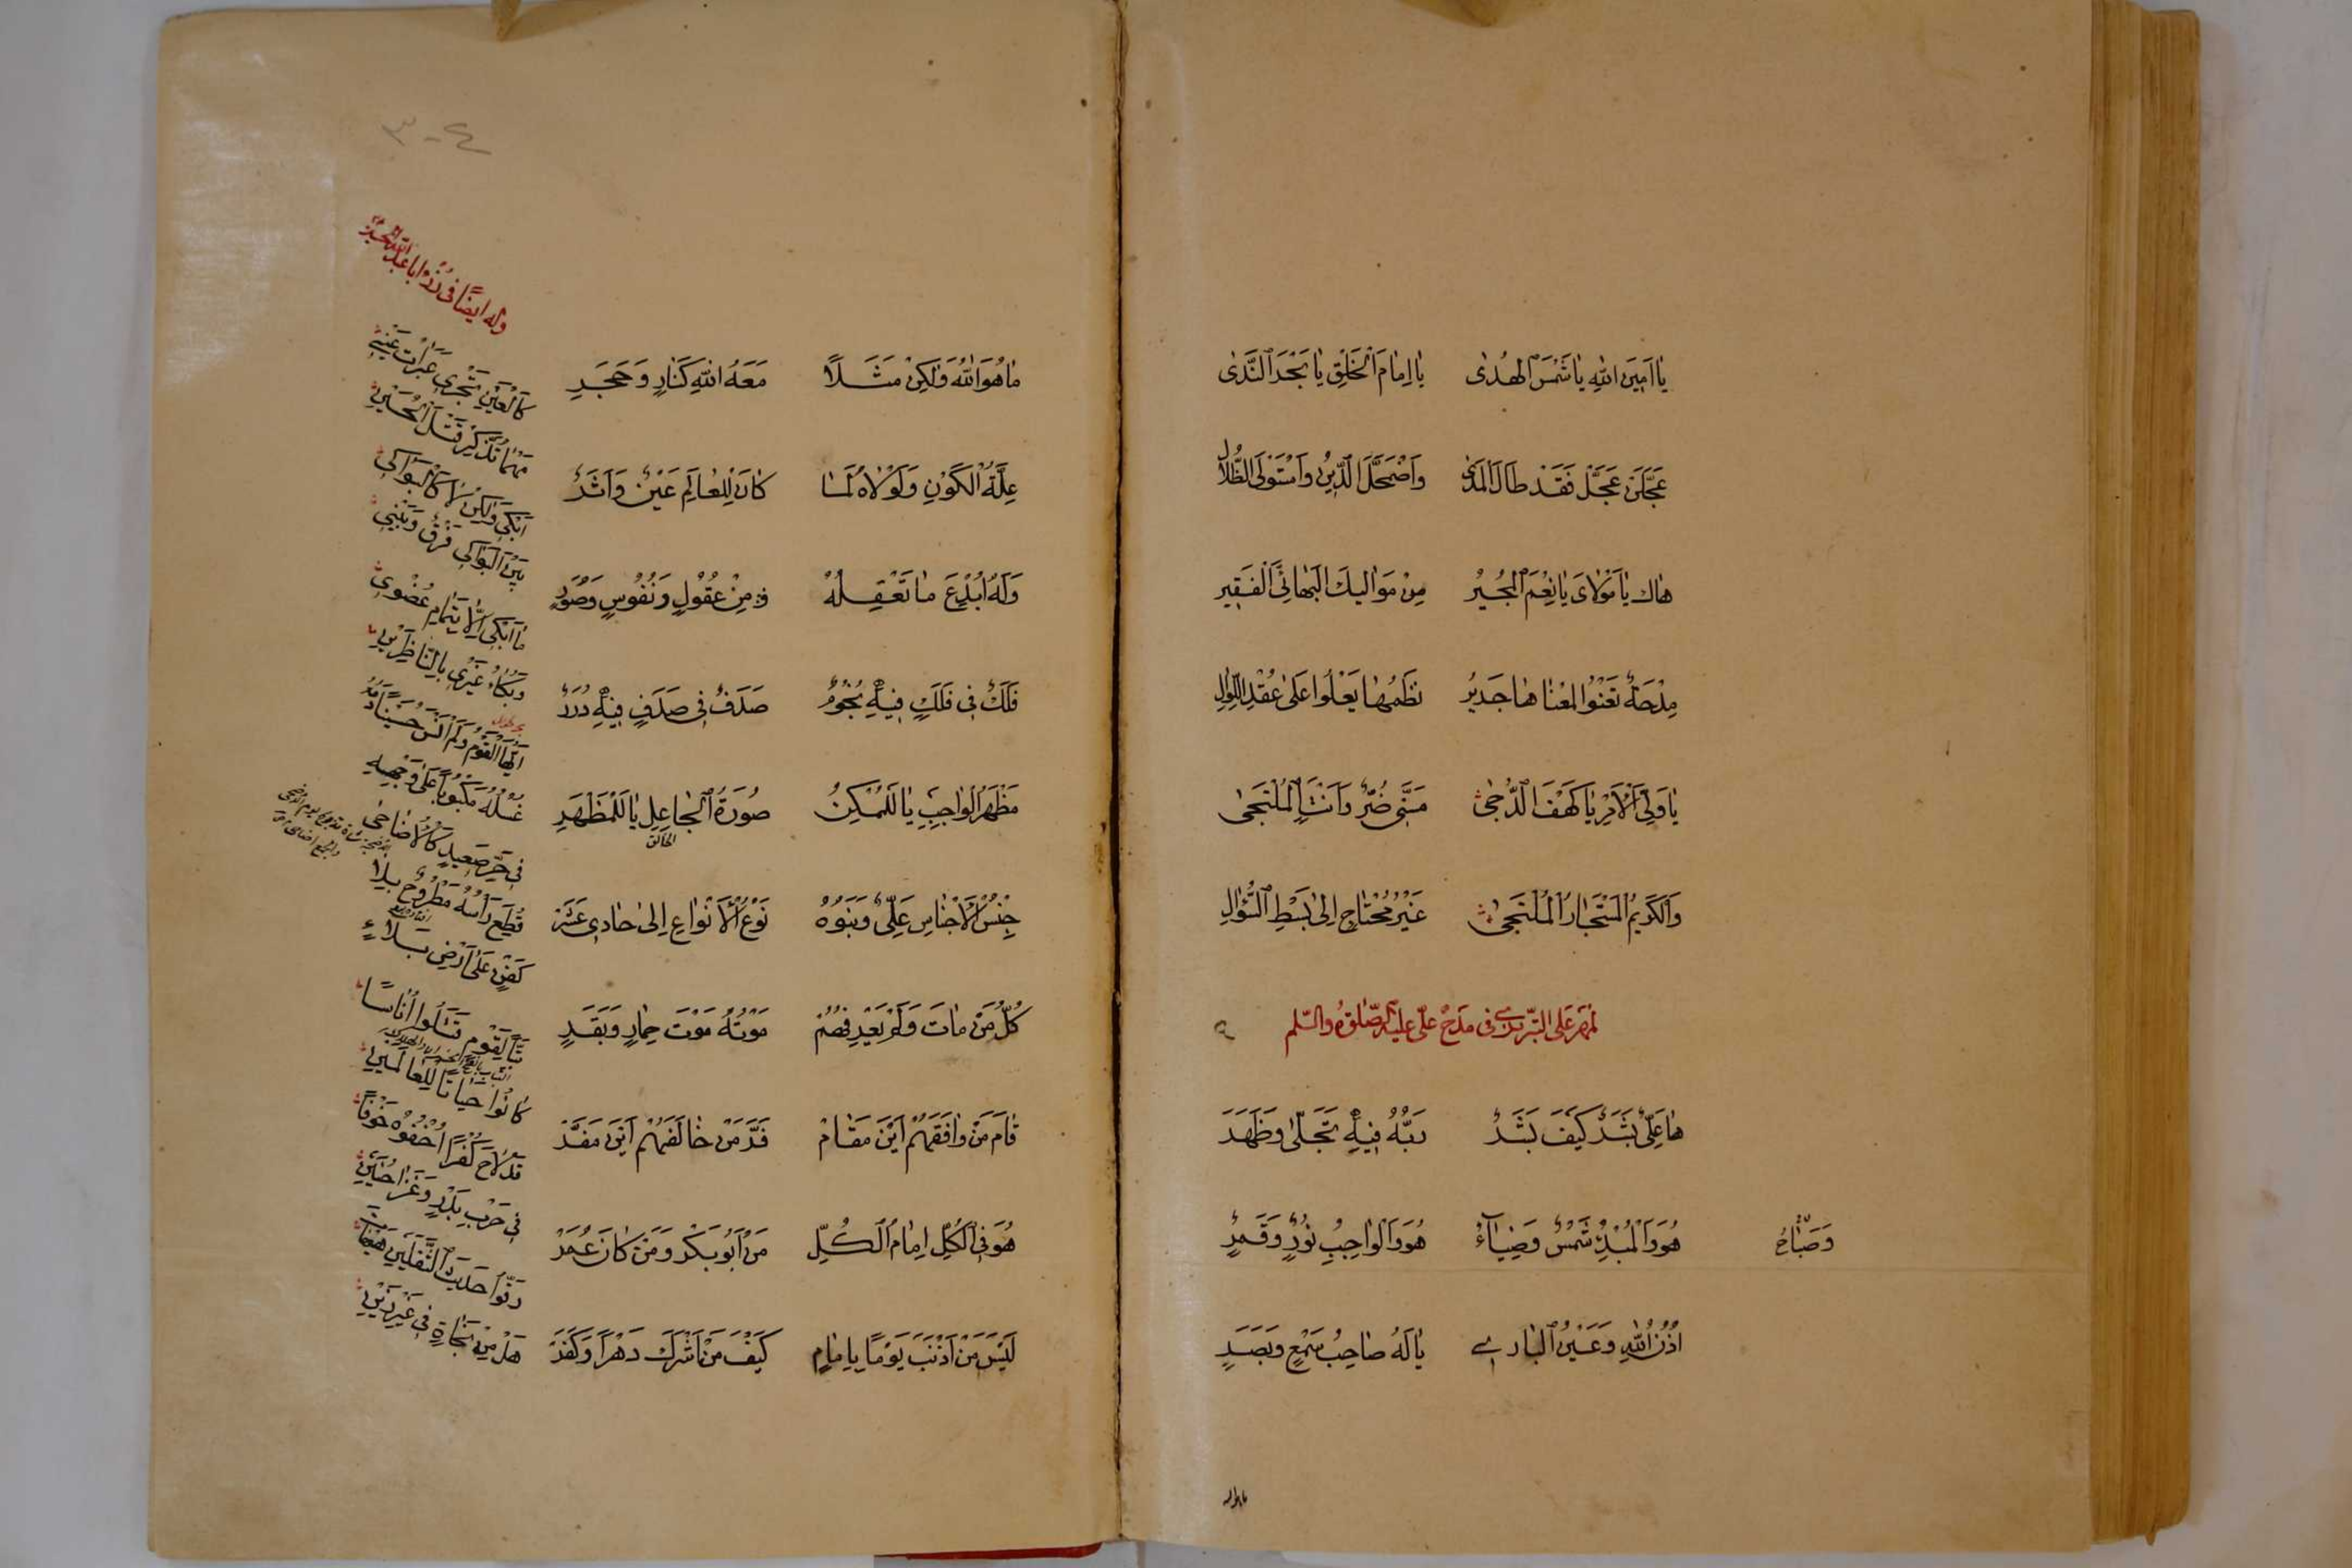 يا اَمِينَ اللهِ يا شَمْسَ الْهُدىٰ يا اِمامَ الْخَلْقِ يا بَحْرَ النَّدىٰ
عَجِّلَنْ عَجِّلْ فَقَدْ طالَ الْمَدىٰ وَاضْمَحَلَّ الدِّينُ وَاسْتَوْلَى الضَّلال
هاك يا مَوْلاىَ يا نِعْمَ الْمُجيْرُ مِنْ مَواليكَ الْبَهائِىِّ الْفَقِير
مِدْحَةً تَعْنُوا لِمَعْناها جَديرُ نَظْمُها يَعْلُوا عَلىٰ عُقْدِ اللّٓوِالِ
يا وَلِىَّ الْاَمْرِ يا كَهَفَ الدُّجىٰ مَسَّنِى ضُرٌّ وَاَنْتَ الْمُلْتَجىٰ
وَالْكَريمُ الْمُسْتَجارُ الْمُلْتَجىٰ غَيْرُ مُحْتاجٍ اِلىٰ بَسْطِ السُّؤالِ
لمهر على التبريزى فى مدح علىّ عليه الصّلوة والسّلم
ها عَلِىٌّ بَشَرٌ كَيْفَ بَشَرُ رَبُّهُ فِيهِ تَجَلّىٰ وَظَهَرَ
هُوَ وَالْمُبْدِءُ شَمْسٌ وَضِيآءٌ هُوَ وَالْواجِبِ نُورٌ وَقَمَرٌ
وَصَبّاحُ
اُذُنُ اللهِ وَعَيْنُ الْبارى يا لَهُ صاحِبُ سَمْعٍ وَبَصَرٍ
ماهوالله
٣-٤
ما هُوَ اللهُ وَلكِنْ مَثَلاً مَعَهُ اللهِ كَنارٍ وَحَجَرِ
عِلَّةُ الْكَوْنِ وَلَوْلاهُ لَما كانَ لِلْعالَمِ عَيْنٌ وَاَثَرٌ
وَلَهُ اُبْدِعَ ما تَعْقِلُهُ مِنْ عُقُولٍ وَنُفُوسٍ وَصُوَرٍ
فَلَكٌ فى فَلَكٍ فِيهِ نُجُومٌ صَدَفٌ فى صَدَفٍ فِيهِ دُرَرٌ
مَظْهَرُ الْواجِبِ يا لَلْمُمْكِنُ صُورَةُ الْجاعِلِ يا لَلْمَظْهَرِ
الخالق
جِنْسُ الْاَجْناسِ عَلِىٌّ وَبَنوُهُ نَوْعُ الْاَنْواعِ اِلىٰ حادى عَشَرَ
كُلُّ مَنْ ماتَ وَلَمْ يَعْرِفْهُمْ مَوْتُهُ مَوْتَ حِمارٍ وَبَقَرٍ
قامَ مَنْ وافَقَهُمْ اَيْنَ مَقامْ فَرَّ مَنْ خالَفَهُمْ اَيْنَ مَفَرَّ
هُوَ فِى الْكُلِّ اِمامُ الْكُلِّ مَنْ اَبُوبَكْر وَمَنْ كانَ عُمَرْ
لَيْسَ مَنْ اَذْنَبَ يَوْمًا بِاِمامٍ كَيْفَ مَنْ اَشْرَكَ دَهْرًا وَكَفَرَ
وله ايضًا فى اباعبدالله الحسين
كَالْعَيْنِ تَجْرِى عَبَراتُ عَيْنِى
مَهْما تَذَكَّرَ قَتْلَ الْحُسَيْنِ
اَبْكِى وَلكِنْ لا كَالْبَواكِى
بَيْنَ الْبَواكِى فَرْقٌ وَبَيْنِى
ما اَبْكِى اِلّا بِتَمامِ عُضْوِى
وَبُكاءُ غَيْرى بِالنّاظِرَيْنِ
اَيُّهَا الْقَوْمُ وَلَمْ اَنْسَ حُسَيْنًا
غُسْلُهُ مَكْبُوبًا عَلىٰ وَجْهِهِ
فى حَرِّ صَعِيدٍ كَالْاَضاحى
قُطِعَ رَأسُهُ مَطْرُوحٌ بِلا
كَفَنٍ عَلىٰ اَرْضِ بَلاءٍ
تَبًّا لِقَوْمٍ قَتَلُوا اُناسًا
كانُوا حَياتًا لِلْعالَمينِ
قَدْ لاحَ كُفْرًا اَخْفُوهُ خَوْفًا
فى حَرْبِ بَدْرٍ وَغَزا حُنَيْنِ
رَدُّوا حَديثَ الثَّقَلَيْنِ هَيْهاتَ
هَلْ مِنْ نَجاةٍ فى غَيْرِ ذَيْنِ